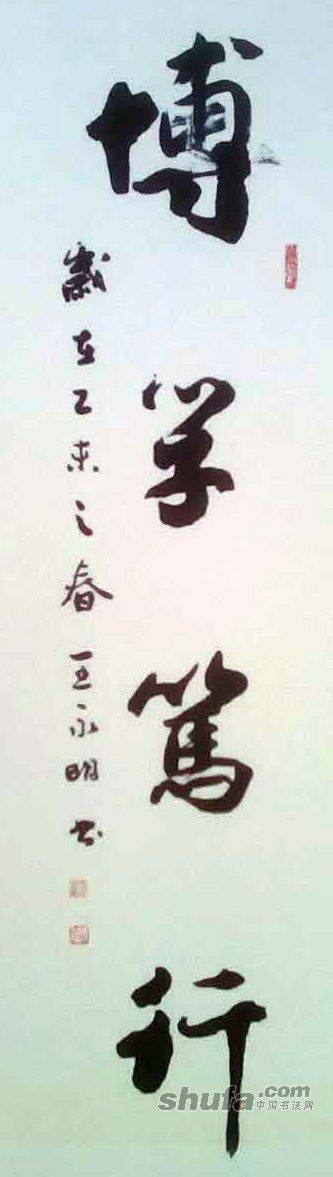 博学笃行
岁在乙未之春王永明书
shufa.com
中国书法网